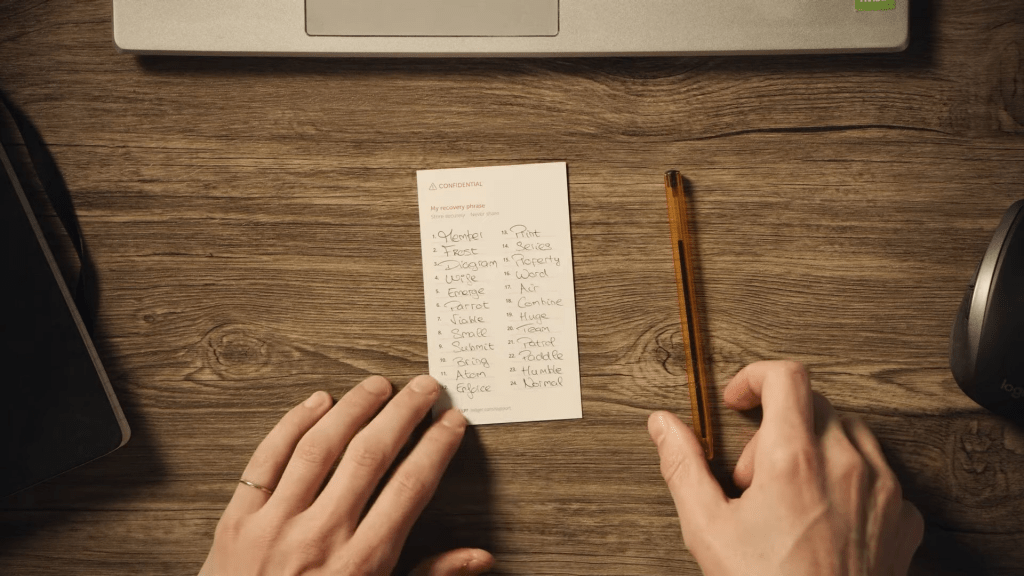 CONFIDENTIAL
My recovery phrase
1. Member
2. Frost
3. Diagram
4. Wife
5. Emerge
6. Parrot
7. Viable
8. Small
9. Submit
10. Bring
11. Atom
12. Enforce
13. Print
14. Series
15. Property
16. Word
17. Air
18. Combine
19. Huge
20. Team
21. Patrol
22. Paddle
23. Humble
24. Normal